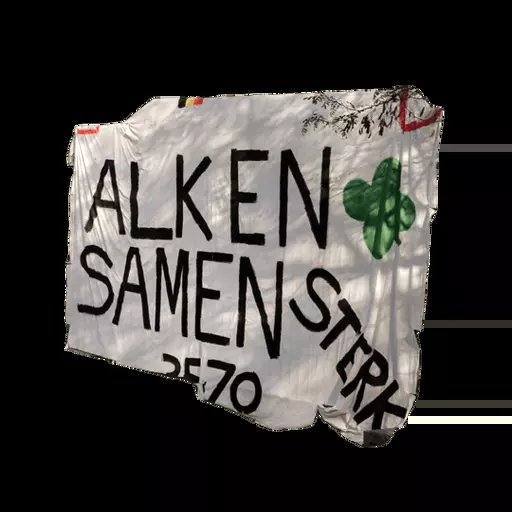 ALKEN
SAMEN
STERK
3570